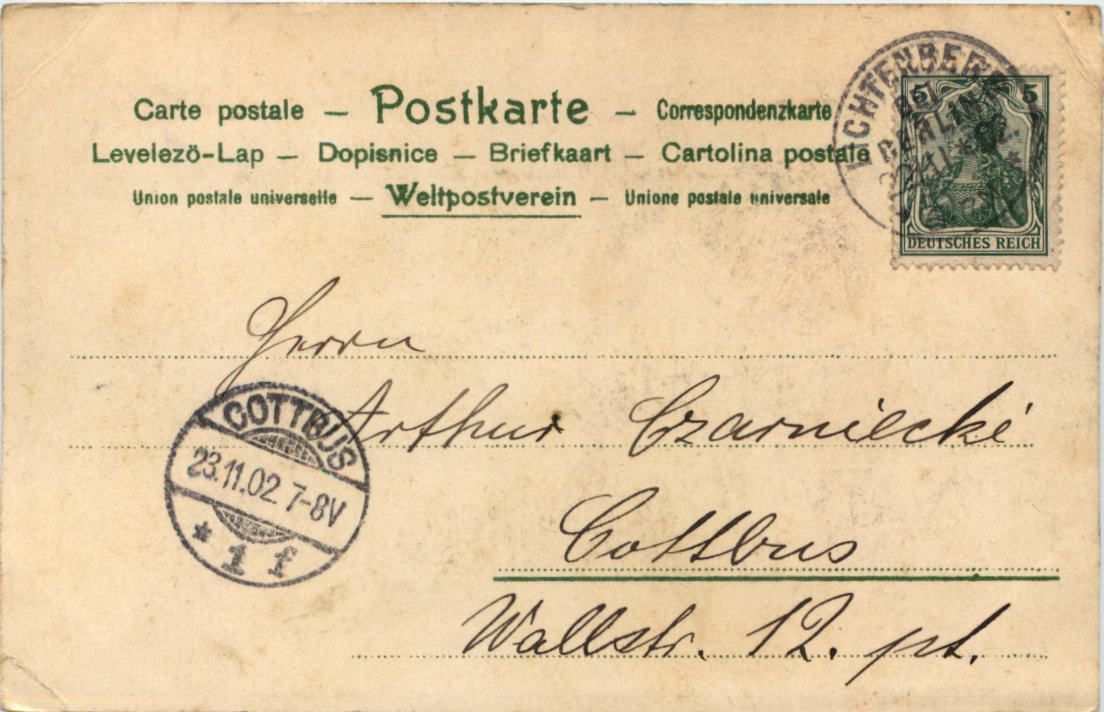 Carte postale — Postkarte — Correspondenzkarte
Levelezö-Lap — Dopisnice — Briefkaart — Cartolina postale
Union postale universelle — Weltpostverein — Unione postale universale
LICHTENBERG
BERLIN
5 5
DEUTSCHES REICH
Herrn
Arthur Czarniecki
COTTBUS
23.11.02. 7-8V
* 1 f
Cottbus
Wallstr. 12. pt.